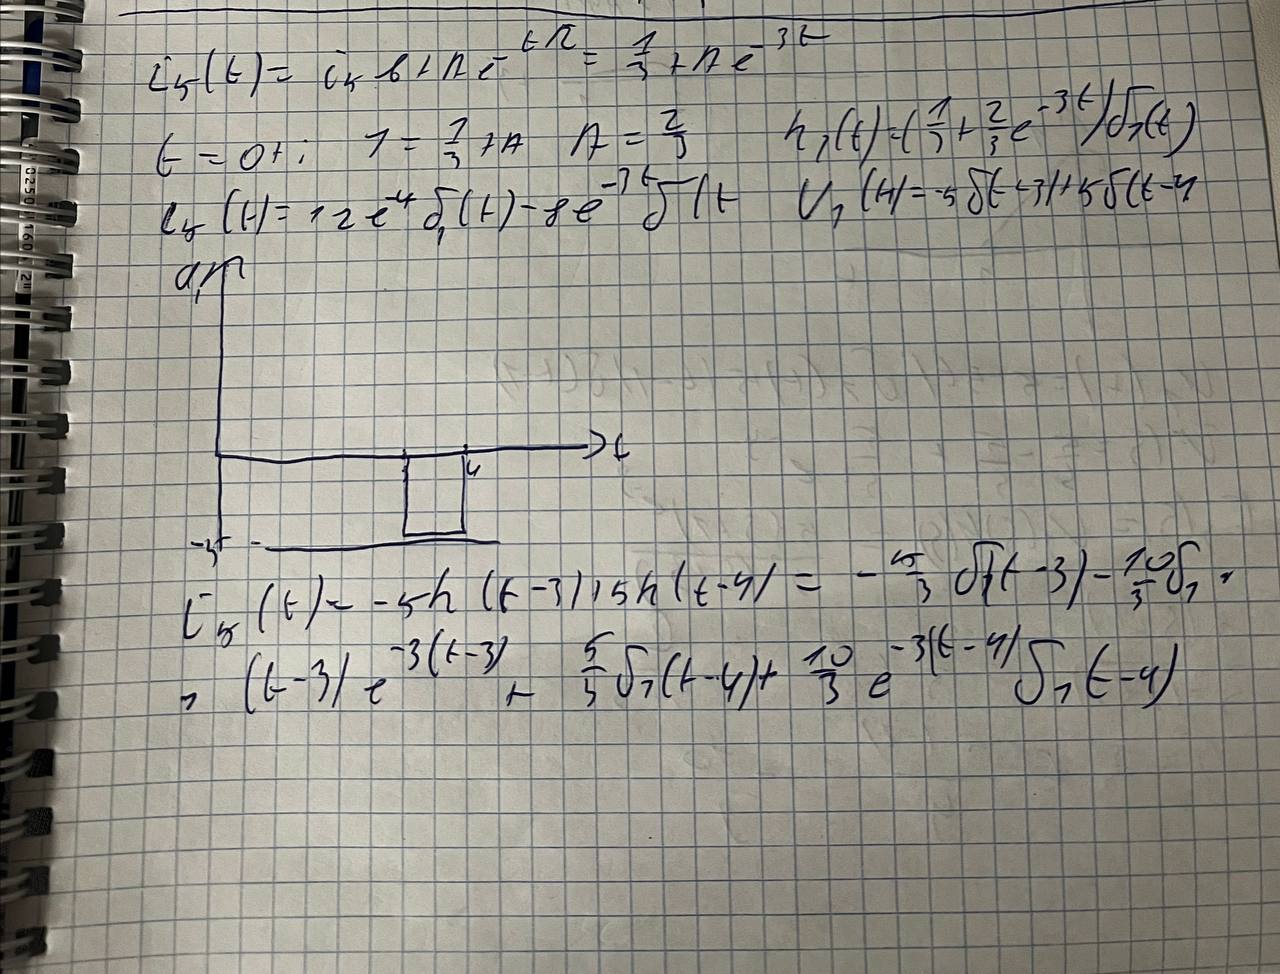 i₅(t) = i₅ в + A e^-t/2 = 1/3 + A e^-3t
t = 0+: 1 = 1/3 + A A = 2/3 h₁(t) = (1/3 + 2/3 e^-3t) δ₁(t)
i₅(t) = 12 e^-4 δ₁(t) - 8 e^-3t δ(t U₁(t) = -5 δ(t-3) + 5 δ(t-4
t
4
i₅(t) = -5h (t-3) + 5h (t-4) = - 5/3 δ₁(t-3) - 10/3 δ₁ ·
(t-3) e^-3(t-3) + 5/3 δ₁(t-4) + 10/3 e^-3(t-4) δ₁(t-4)